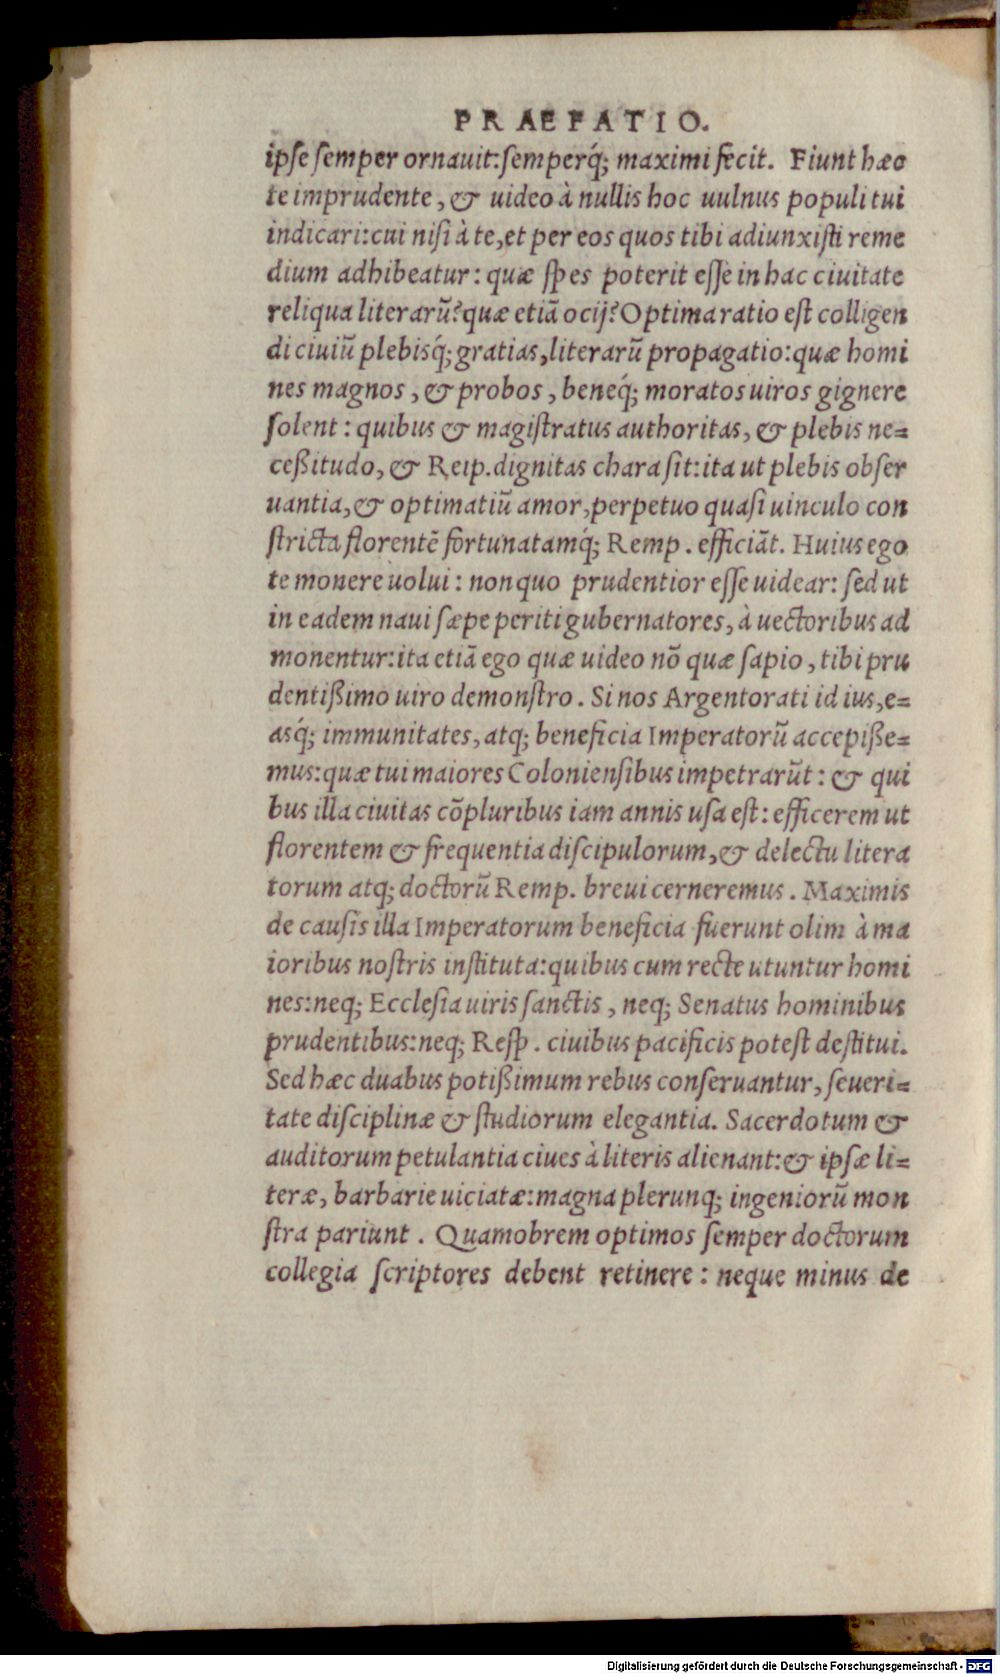 PRAEFATIO.
ipſe ſemper ornauit:ſemperq́; maximi fecit. Fiunt hæc
te imprudente, & uideo à nullis hoc uulnus populi tui
indicari:cui niſi à te,et per eos quos tibi adiunxiſti reme
dium adhibeatur: quæ ſpes poterit eſſe in hac ciuitate
reliqua literarū? quæ etiā ocij? Optima ratio eſt colligen
di ciuiū plebisq́; gratias, literarū propagatio: quæ homi
nes magnos, & probos, beneq́; moratos uiros gignere
ſolent: quibus & magiſtratus authoritas, & plebis ne=
ceßitudo, & Reip. dignitas chara ſit: ita ut plebis obſer
uantia, & optimatiū amor, perpetuo quaſi uinculo con
ſtricta florentē fortunatamq́; Remp. efficiāt. Huius ego
te monere uolui: non quo prudentior eſſe uidear: ſed ut
in eadem naui ſæpe periti gubernatores, à uectoribus ad
monentur: ita etiā ego quæ uideo nō quæ ſapio, tibi pru
dentißimo uiro demonſtro. Si nos Argentorati id ius, e=
asq́; immunitates, atq; beneficia Imperatorū accepiße=
mus: quæ tui maiores Colonienſibus impetrarūt: & qui
bus illa ciuitas cōpluribus iam annis uſa eſt: efficerem ut
florentem & frequentia diſcipulorum, & delectu litera
torum atq; doctorū Remp. breui cerneremus. Maximis
de cauſis illa Imperatorum beneficia fuerunt olim à ma
ioribus noſtris inſtituta: quibus cum recte utuntur homi
nes: neq; Eccleſia uiris ſanctis, neq; Senatus hominibus
prudentibus: neq; Reſp. ciuibus pacificis poteſt deſtitui.
Sed hæc duabus potißimum rebus conſeruantur, ſeueri=
tate diſciplinæ & ſtudiorum elegantia. Sacerdotum &
auditorum petulantia ciues à literis alienant: & ipſæ li=
teræ, barbarie uiciatæ: magna plerunq; ingeniorū mon
ſtra pariunt. Quamobrem optimos ſemper doctorum
collegia ſcriptores debent retinere: neque minus de
Digitalisierung gefördert durch die Deutsche Forschungsgemeinschaft - DFG